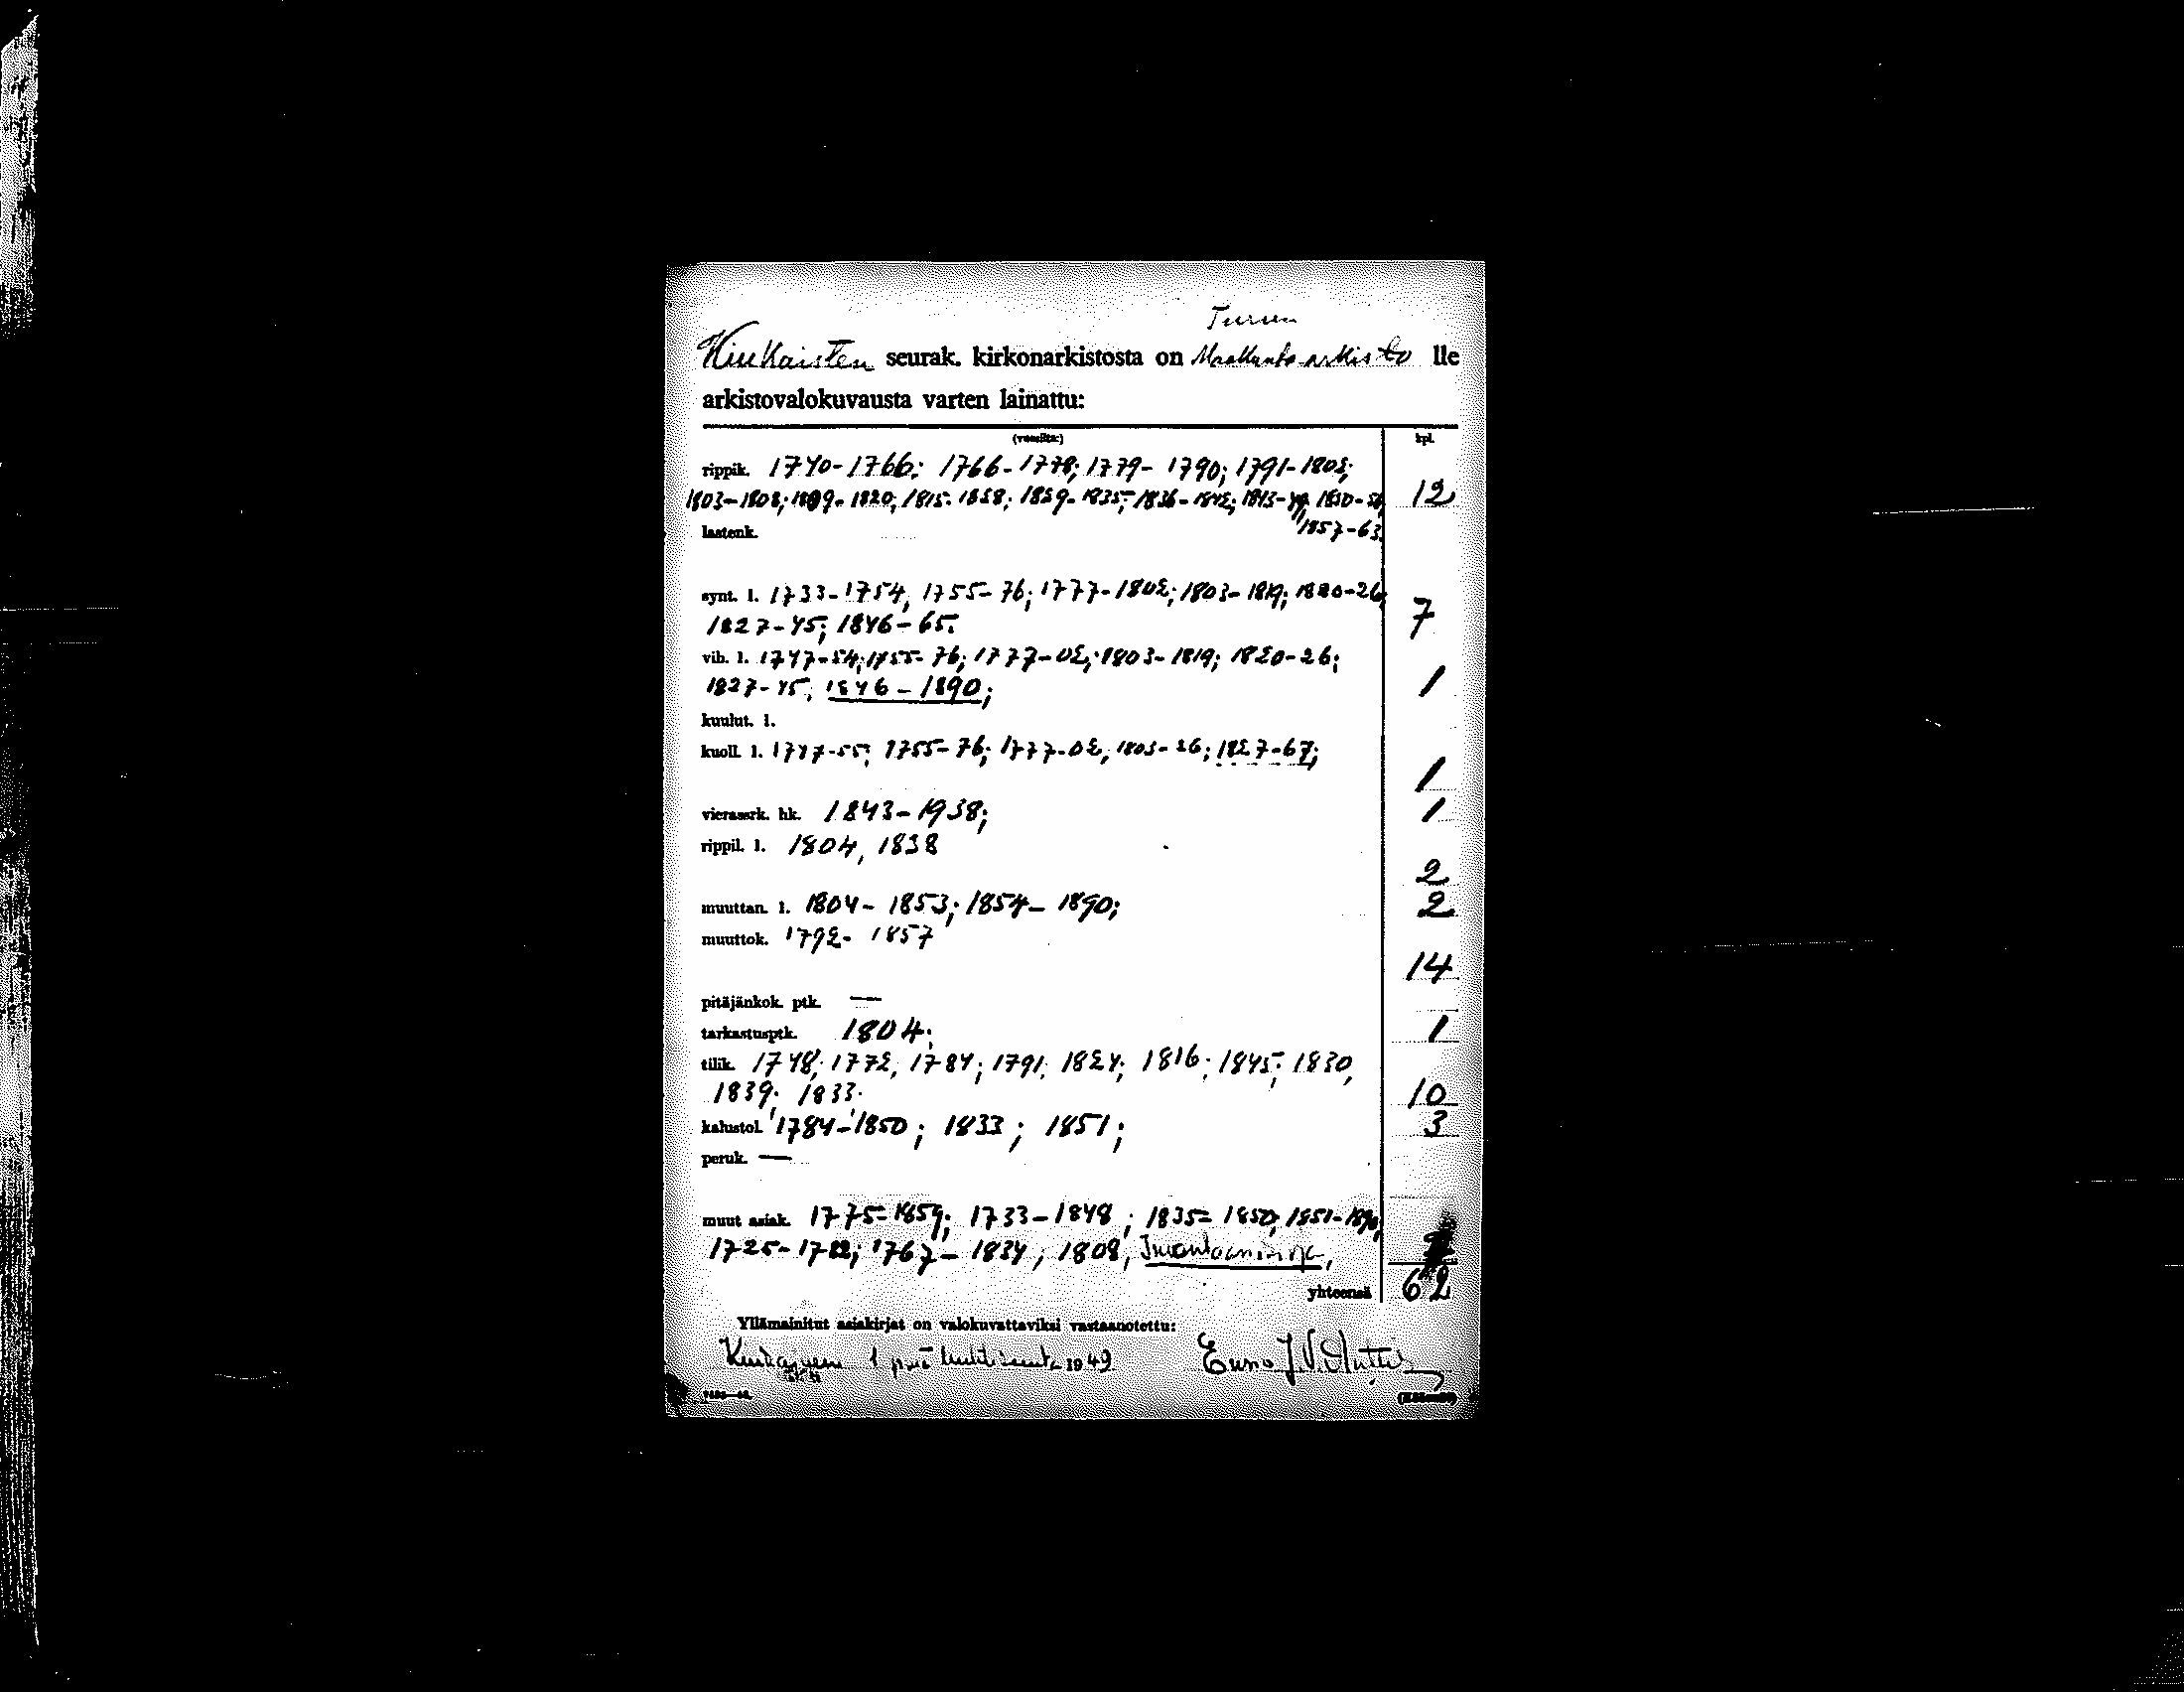 Turun
Kiukaisten seurak. kirkonarkistosta on Maakunta-arkisto lle
arkistovalokuvausta varten lainattu:
(vuosilta:) kpl.
rippik. 1740-1766; 1766-1778; 1779-1790; 1791-1803;
1803-1808; 1809-1820; 1815- 1829-1835; 1836-1842; 1843-49, 1850-56, 12
lastenk. 1857-63.
synt. l. 1733-1754, 1755-76; 1777-1802; 1803-1819; 1820-26,
1827-45; 1846-65. 7
vih. l. 1747-54; 1755-76; 1777-02; 1803-1819; 1820-26;
1827-45, 1846-1890; 1
kuulut. l.
kuoll. l. 1747-55; 1755-76; 1777-02, 1803-26; 1827-67;
1
vierassrk. hk. 1843-1938; 1
rippil. l. 1804, 1838
2
muuttan. l. 1804-1853; 1854-1890; 2
muuttok. 1792-1857
14
pitäjänkok. ptk. —
tarkastusptk. 1804; 1
tilik. 1748; 1772, 1784; 1791; 1824; 1816; 1845; 1830,
1839; 1833. 10
kalustol. 1784-1850; 1833; 1851; 3
peruk. —
muut asiak. 1775-1859; 1733-1848; 1835-1850; 1851-1890,
1725- 1767-1834, 1808,
yhteensä 62
Yllämainitut asiakirjat on valokuvattaviksi vastaanotettu:
Kiukainen 1 p:nä huhtikuuta 1949 Eino J. V.